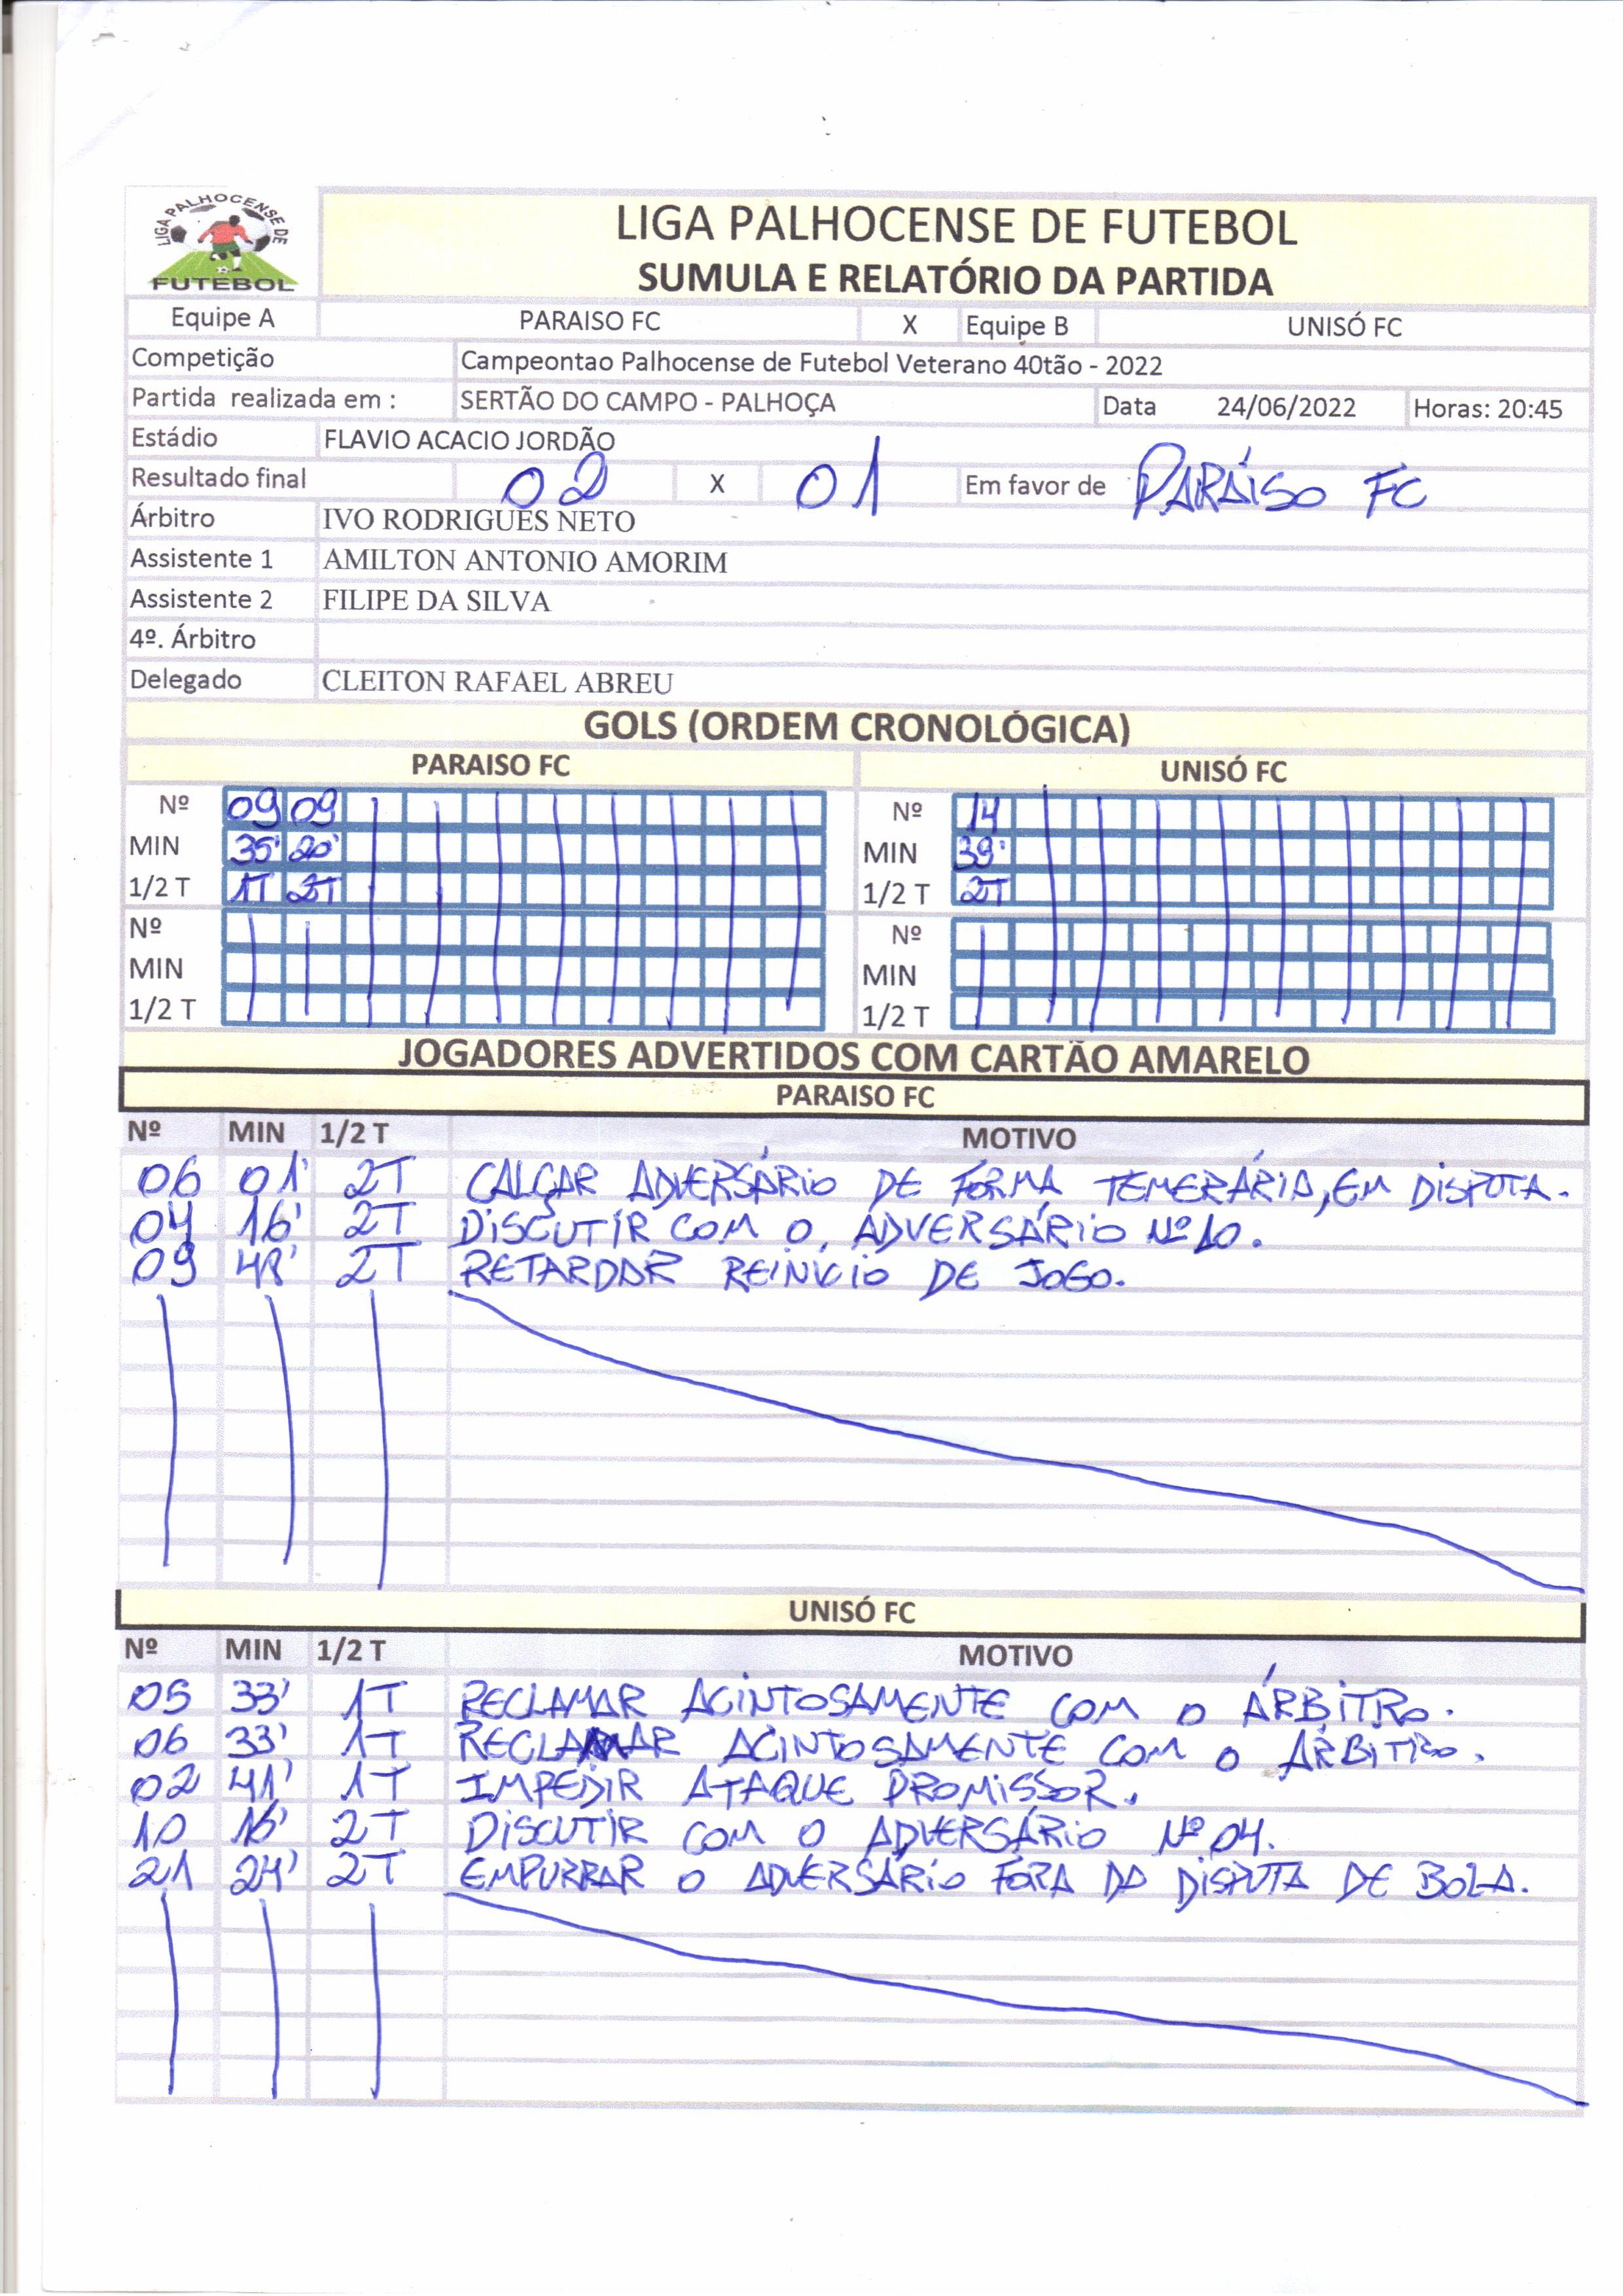 LIGA PALHOCENSE DE FUTEBOL
LIGA PALHOCENSE DE FUTEBOL
SUMULA E RELATÓRIO DA PARTIDA
Equipe A PARAISO FC X Equipe B UNISÓ FC
Competição Campeontao Palhocense de Futebol Veterano 40tão - 2022
Partida realizada em : SERTÃO DO CAMPO - PALHOÇA Data 24/06/2022 Horas: 20:45
Estádio FLAVIO ACACIO JORDÃO
Resultado final 02 X 01 Em favor de PARAÍSO FC
Árbitro IVO RODRIGUES NETO
Assistente 1 AMILTON ANTONIO AMORIM
Assistente 2 FILIPE DA SILVA
4º. Árbitro
Delegado CLEITON RAFAEL ABREU
GOLS (ORDEM CRONOLÓGICA)
PARAISO FC UNISÓ FC
Nº 09 09 Nº 14
MIN 35' 20' MIN 39'
1/2 T 1T 2T 1/2 T 2T
Nº Nº
MIN MIN
1/2 T 1/2 T
JOGADORES ADVERTIDOS COM CARTÃO AMARELO
PARAISO FC
Nº MIN 1/2 T MOTIVO
06 01' 2T CALÇAR ADVERSÁRIO DE FORMA TEMERÁRIA, EM DISPUTA.
04 16' 2T DISCUTIR COM O ADVERSÁRIO Nº 10.
09 48' 2T RETARDAR REINÍCIO DE JOGO.
UNISÓ FC
Nº MIN 1/2 T MOTIVO
05 33' 1T RECLAMAR ACINTOSAMENTE COM O ÁRBITRO.
06 33' 1T RECLAMAR ACINTOSAMENTE COM O ÁRBITRO.
02 41' 1T IMPEDIR ATAQUE PROMISSOR.
10 16' 2T DISCUTIR COM O ADVERSÁRIO Nº 04.
21 24' 2T EMPURRAR O ADVERSÁRIO FORA DA DISPUTA DE BOLA.